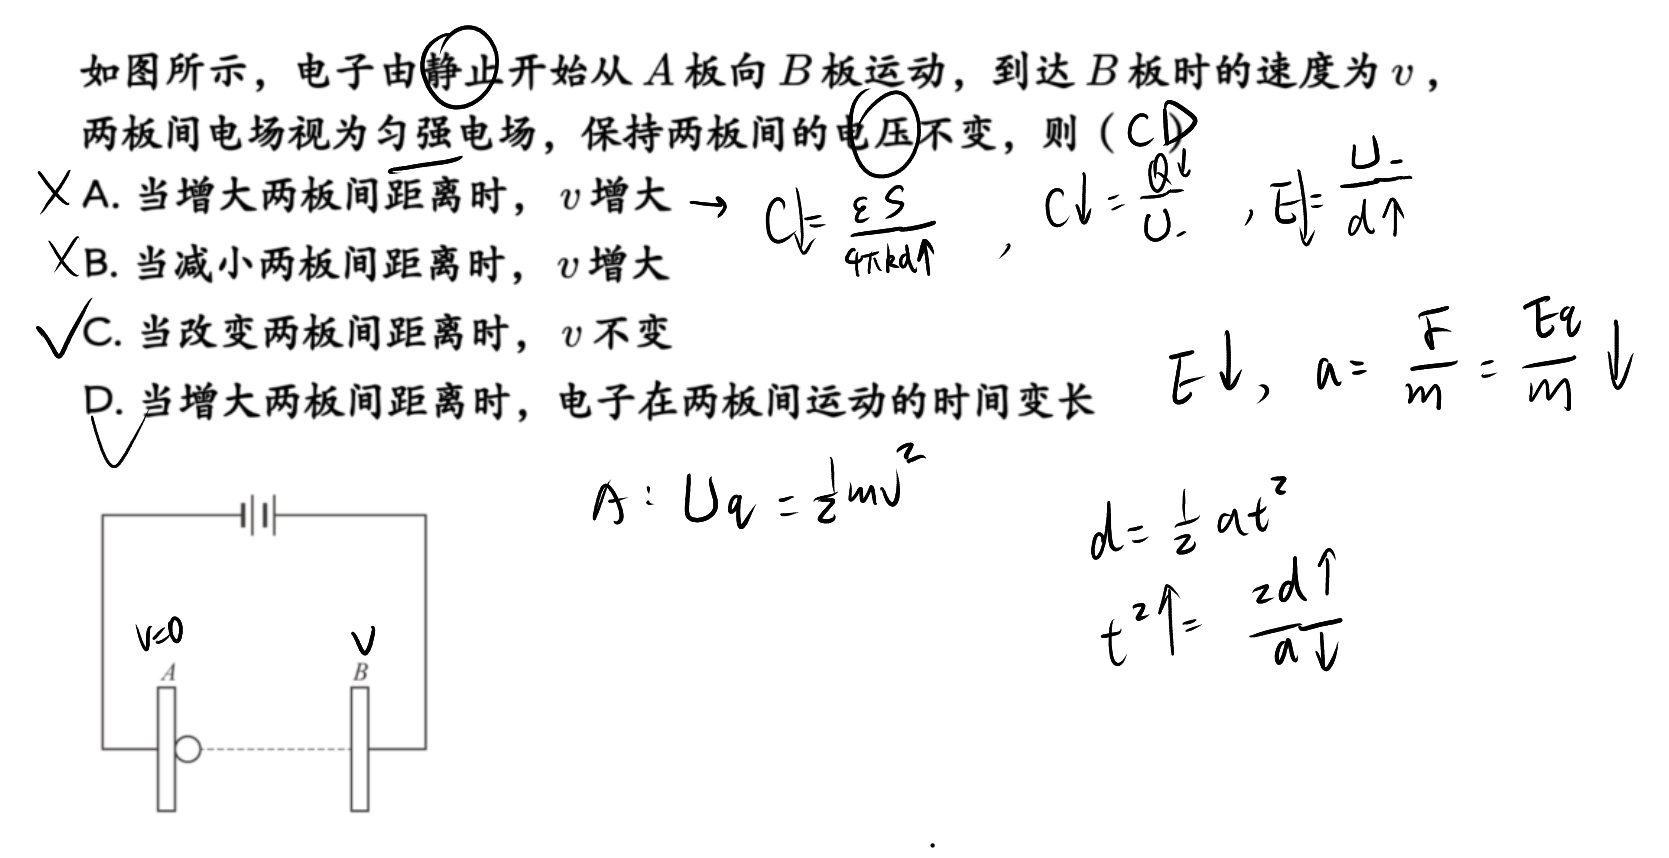 如图所示，电子由静止开始从 A 板向 B 板运动，到达 B 板时的速度为 v，
两板间电场视为匀强电场，保持两板间的电压不变，则（CD）
X A. 当增大两板间距离时，v 增大 → C↓=εS/4πkd↑ , C↓=Q↓/U- , E↓=U-/d↑
X B. 当减小两板间距离时，v 增大
✓ C. 当改变两板间距离时，v 不变
E↓, a=F/m=Eq/m↓
✓ D. 当增大两板间距离时，电子在两板间运动的时间变长
A: Uq=½mv²
d=½at²
t²↑=2d↑/a↓
v=0 v
A B